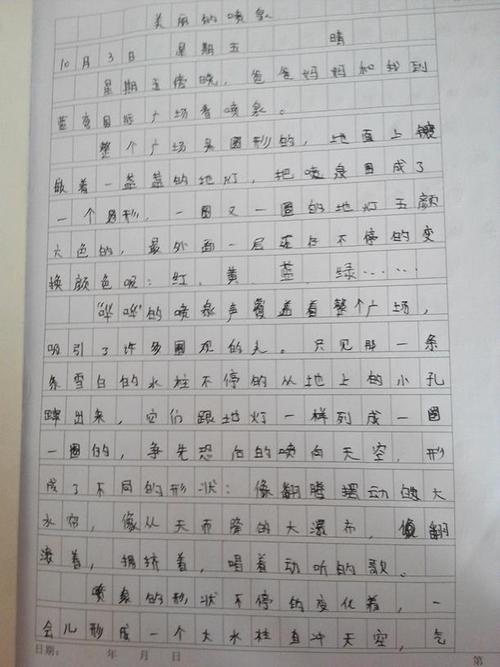 美丽的喷泉
10月3日 星期五 晴
星期五傍晚，爸爸妈妈和我到
蓝湾国际广场看喷泉。
整个广场是圆形的，地面上镶
嵌着一盏盏的地灯，把喷泉围成了
一个圆形，一圈又一圈的地灯五颜
六色的，最外面一层还在不停的变
换颜色呢：红、黄、蓝、绿……
“哗哗”的喷泉声覆盖着整个广场，
吸引了许多围观的人。只见那一条
条雪白的水柱不停的从地上的小孔
蹿出来，它们跟地灯一样列成一圈
一圈的，争先恐后的喷向天空，形
成了不同的形状：像翻腾摆动的大
水帘，像从天而降的大瀑布，像翻
滚着，拥挤着，唱着动听的歌。
喷泉的形状不停的变化着，一
会儿形成一个大水柱直冲天空，气
日期： 年 月 日 第